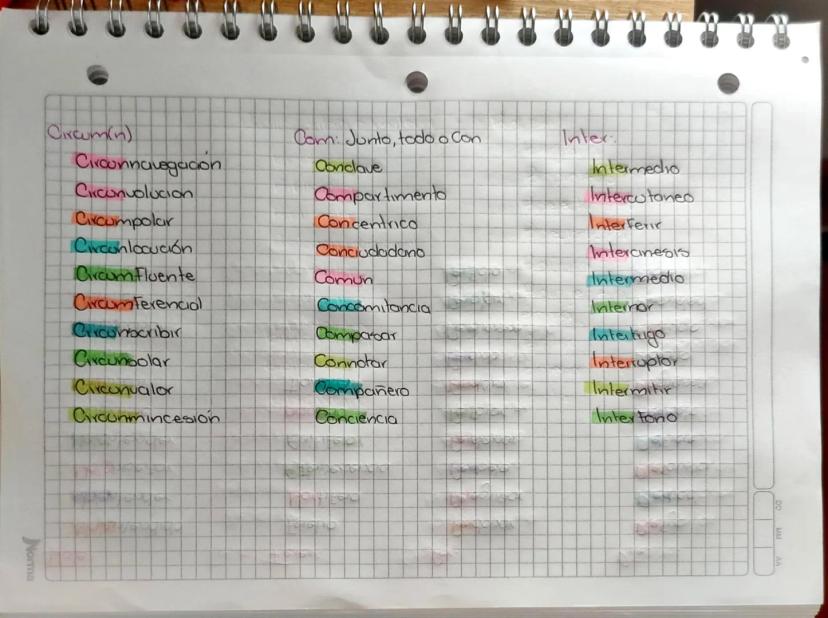 Circum(n)
Circunnavegación
Circunvolucion
Circumpolar
Circunlocución
Circumfluente
Circumferencial
Circunscribir
Circunsolar
Circunvalar
Circunmincesión
Com: Junto, todo o con
Conclave
Compartimento
Concentrico
Conciudadano
Comun
Concomitancia
Comparar
Connotar
Compañero
Conciencia
Inter:
Intermedio
Intercutaneo
Interferir
Intercinesis
Intermedio
Internar
Intertrigo
Interruptor
Intermitir
Interfono
Norma
DD
MM
AA